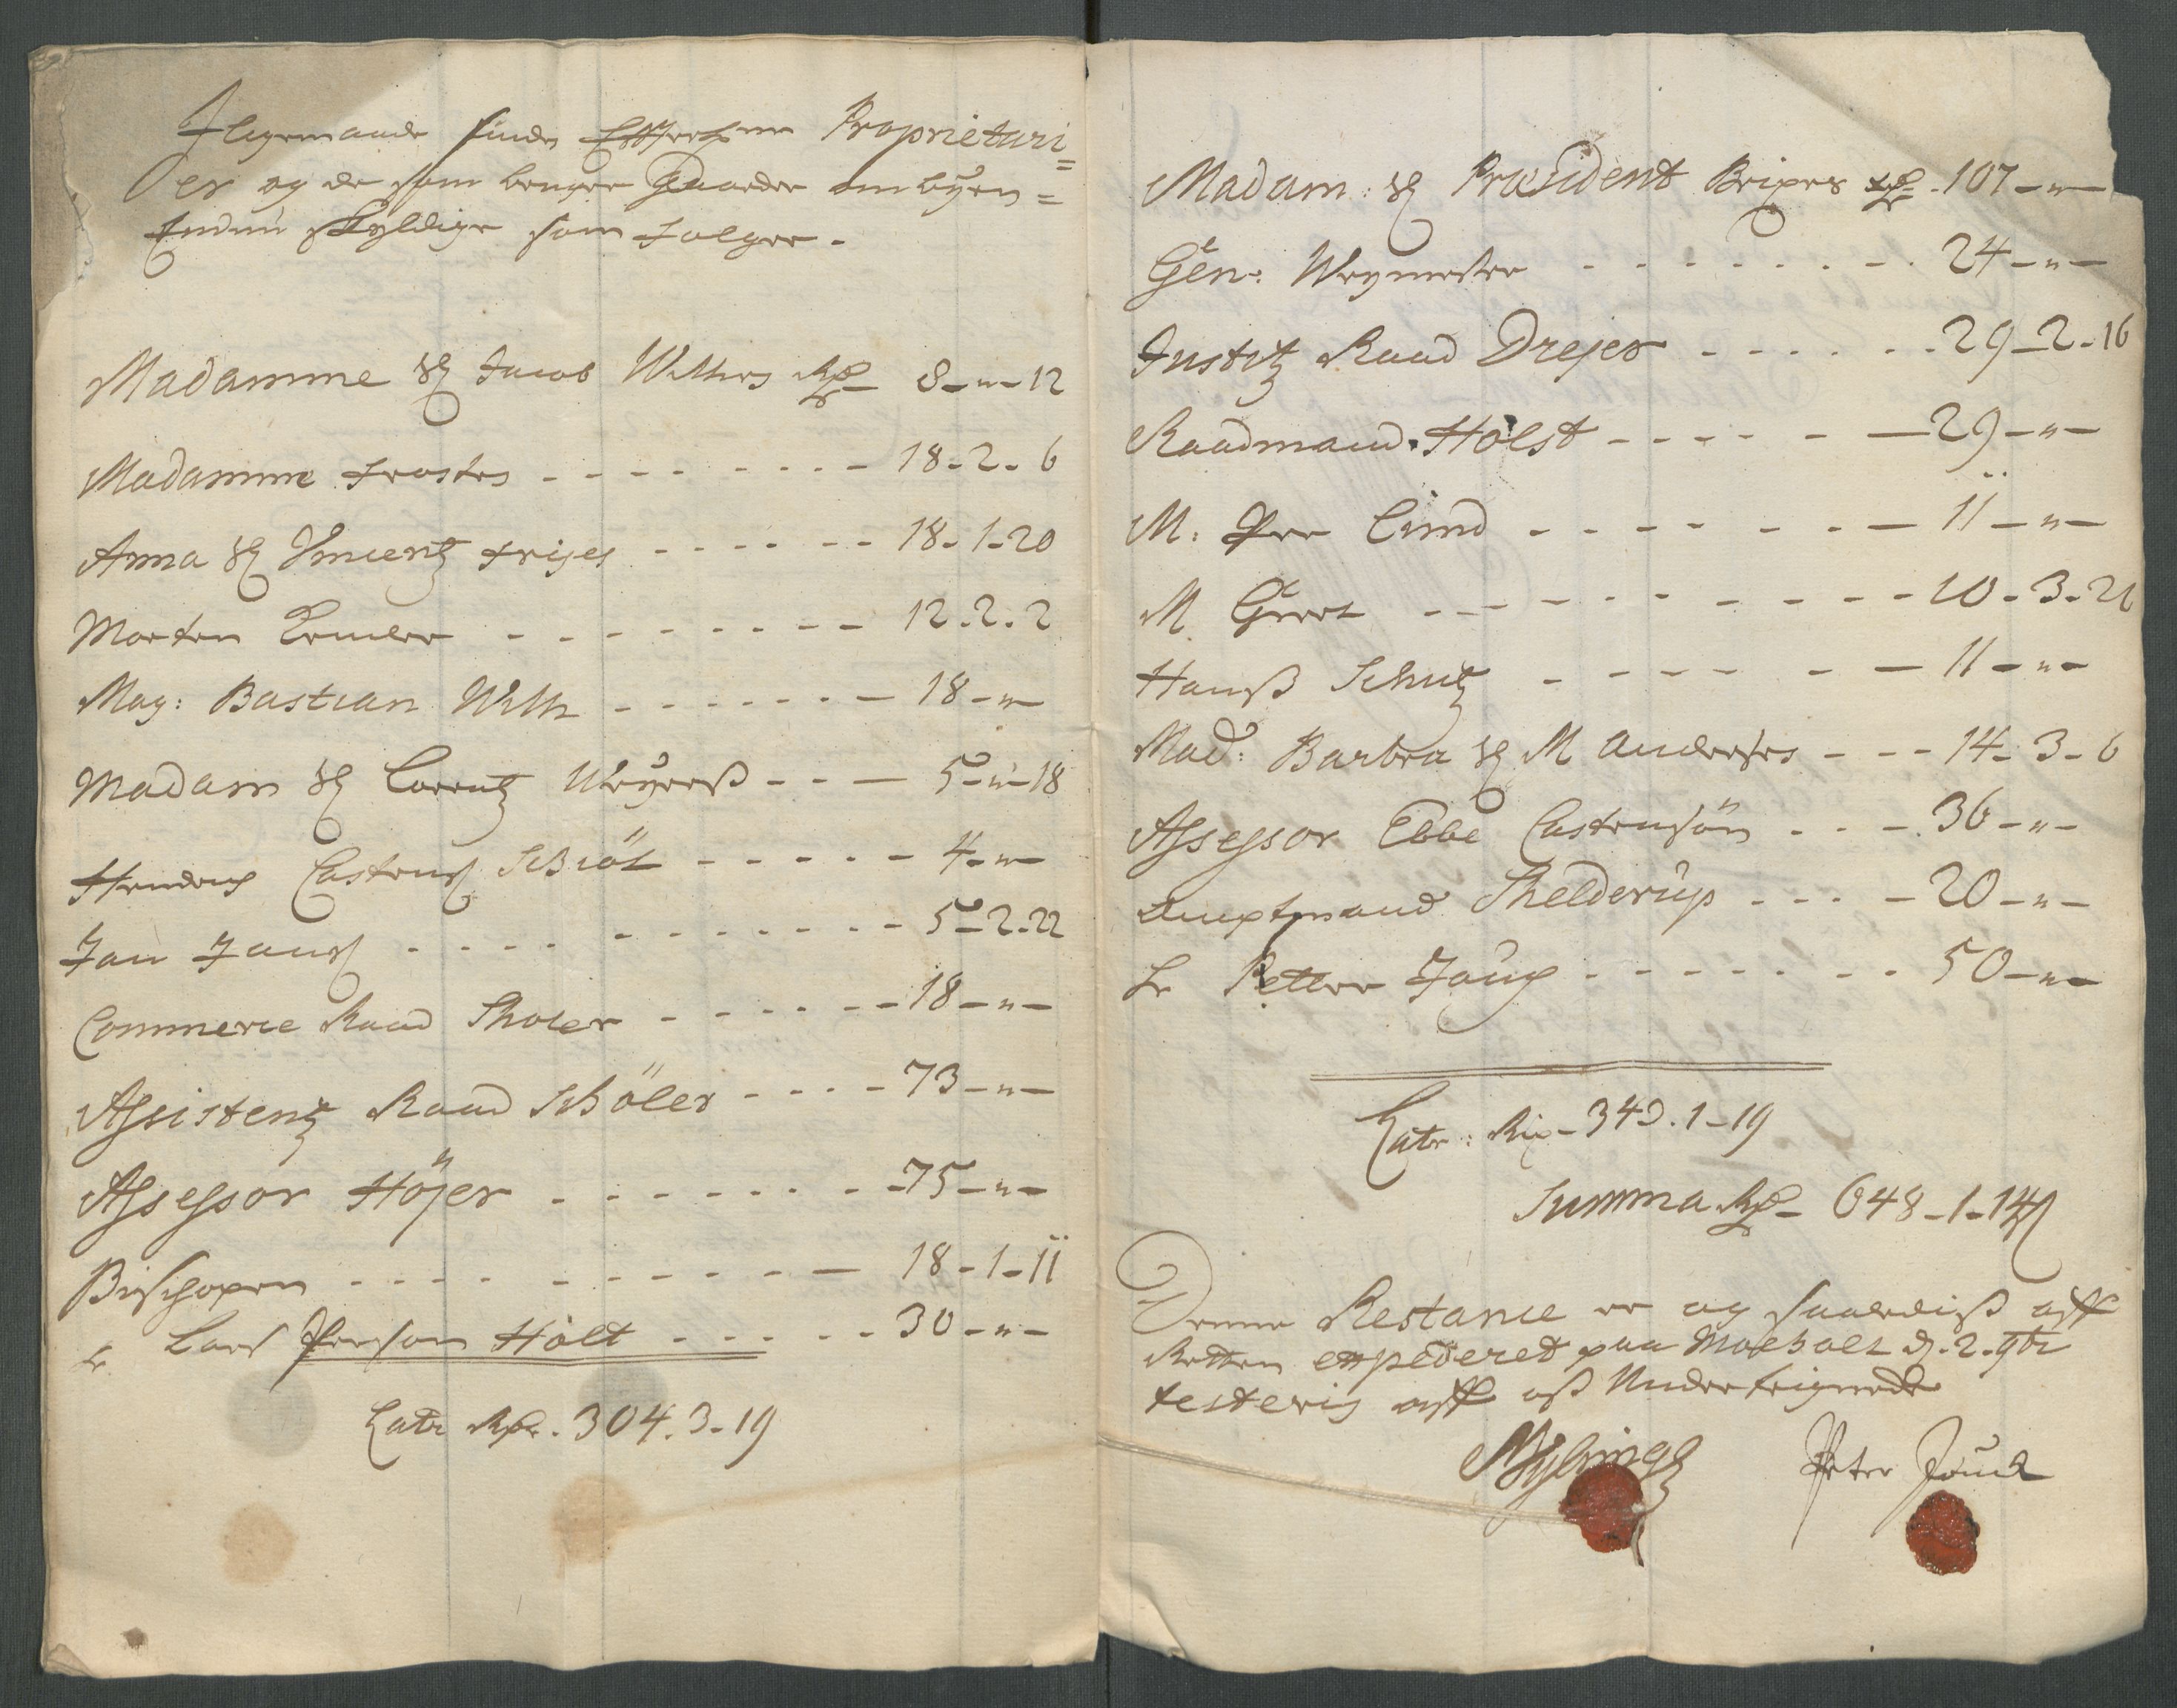 Iligemaade findes Effterschne Proprietari=
er og de som bruger Gaarder om byen=
Endnu skyldige som folger.
Madamme Sl Jacob Withes Rdr 8-"-12
Madamme Frostes - - - - 18-2-6
Anna Sl Vincentz Friises - - - - 18-1-20
Morten Ermler - - - - 12-2-2
Mag: Bastian With - - - - 18-"-
Madam Sl Lorentz Weyerß - - - 5-"-18
Hendrich Castens Schröt - - - - 4-"-
Jan Jans - - - - 5-2-22
Commerce Raad Tholer - - - - 18-"-
Assistentz Raad Schöler - - - - 73-"-
Assessor Höjer - - - - 75-"-
Bischopen - - - - 18-1-11
Sr Lars Person Holt - - - - 30-"-
Latr Rdr. 304.3-19
Madam: Sl Præsident Brixes Rdr 107-"-
Gen: Weymester - - - - 24-"-
Justitz Raad Drejer - - - - 29-2-16
Raadmand Holst - - - - 29-"-
M: Per Lund - - - - 11-"-
M Geert - - - - 10-3-21
Hanß Schutz - - - - 11-"-
Mad: Barbra Sl M Anderses - - - 14-3-6
Assessor Ebbe Castensön - - - 36-"-
Amptmand Shelderup - - - 20-"-
Sr Petter Jouch - - - - 50-"-
Latr: Rix-343.1-19
Summa Rdr- 648-1-14
Denne Restance er og saalediß aff
Retten expederet paa Moeholt d. 2. 9br
testeris aff oß Underteignede
Nybingh Peter Jouch